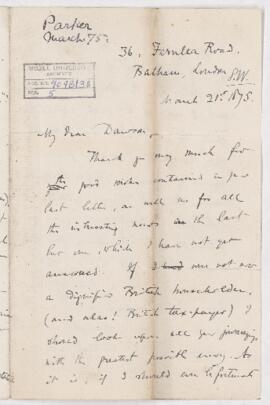 Parker
March 75.
McGILL UNIVERSITY
ARCHIVES
ACC. NO.
REF. 5
36, Fernlea Road,
Balham, London S.W.
March 21st 1875.
My dear Dawson,
Thank you very much for
the good wishes contained in your
last letter, as well as for all
the interesting news in the last
but one, which I have not yet
answered. If I were not now
a dignified British householder,
(and alas! British tax-payer) I
should look upon all your journeyings
with the greatest possible envy. As
it is, if I should ever be fortunate